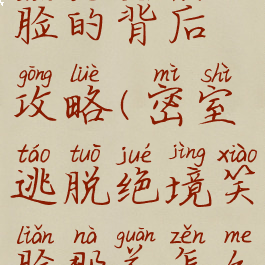 脸的背后
gōng lüè mì shì
攻略(密室
táo tuō jué jìng xiào
逃脱绝境笑
liǎn nà guān zěn me
脸那关怎么